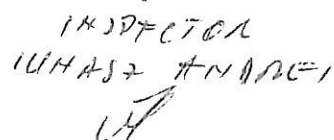 INSPECTOR
IUHASZ ANDREI